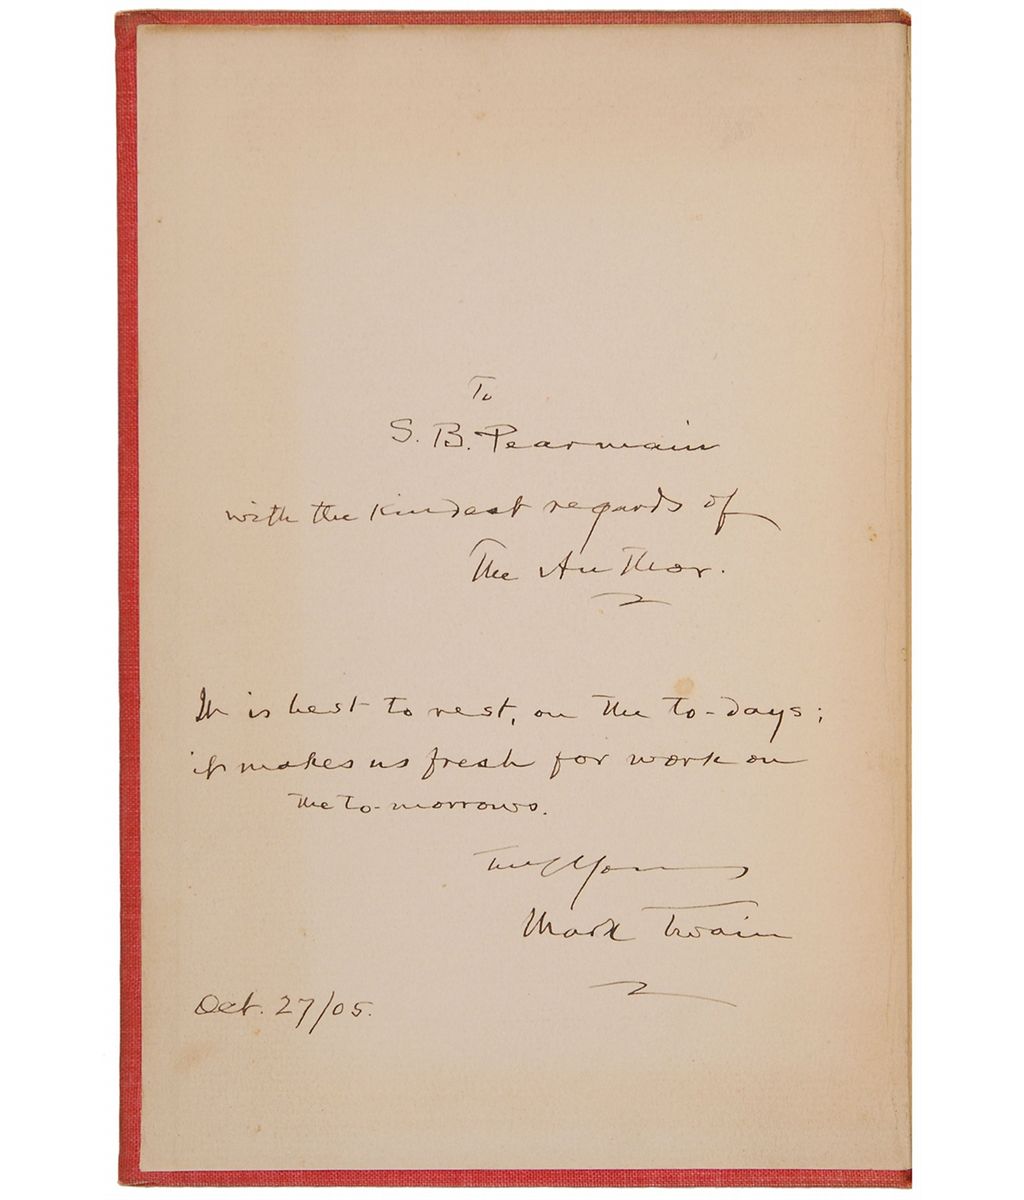 To
S. B. Pearmain
with the kindest regards of
The Author.
It is best to rest, on the to-days;
it makes us fresh for work on
the to-morrows.
Truly Yours
Mark Twain
Oct. 27/05.